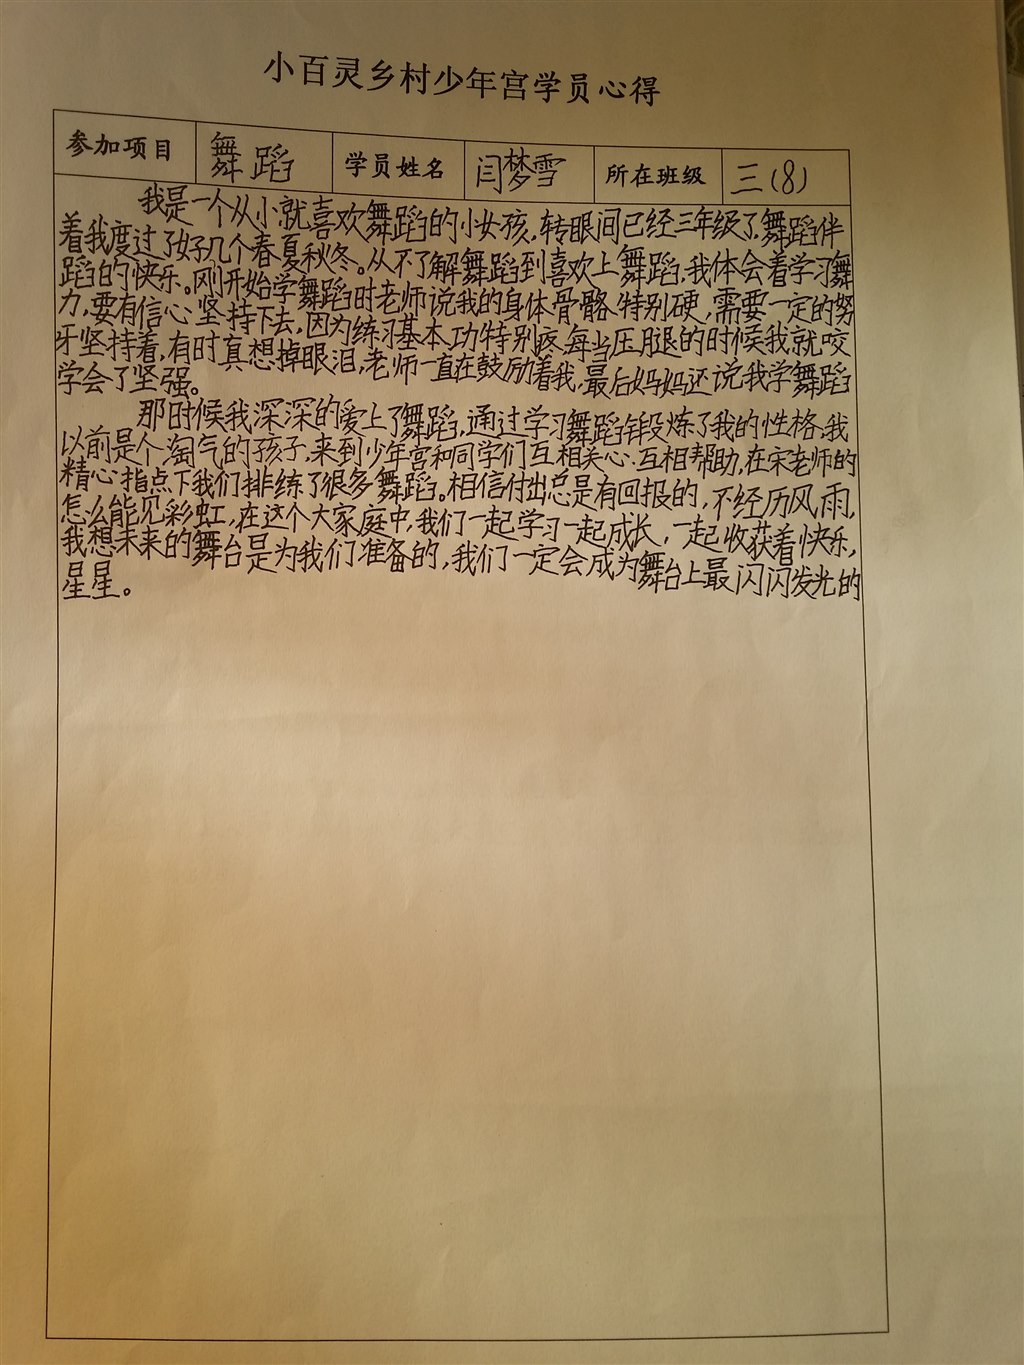 小百灵乡村少年宫学员心得
参加项目 舞蹈 学员姓名 闫梦雪 所在班级 三(8)
我是一个从小就喜欢舞蹈的小女孩,转眼间已经三年级了,舞蹈伴
着我度过了好几个春夏秋冬。从不了解舞蹈到喜欢上舞蹈,我体会着学习舞
蹈的快乐。刚开始学舞蹈时老师说我的身体骨骼特别硬,需要一定的努
力,要有信心坚持下去,因为练习基本功特别疼,每当压腿的时候我就咬
牙坚持着,有时真想掉眼泪,老师一直在鼓励着我,最后妈妈还说我学舞蹈
学会了坚强。
那时候我深深的爱上了舞蹈,通过学习舞蹈锻炼了我的性格,我
以前是个淘气的孩子,来到少年宫和同学们互相关心,互相帮助,在宋老师的
精心指点下我们排练了很多舞蹈。相信付出总是有回报的,不经历风雨,
怎么能见彩虹,在这个大家庭中,我们一起学习一起成长,一起收获着快乐,
我想未来的舞台是为我们准备的,我们一定会成为舞台上最闪闪发光的
星星。